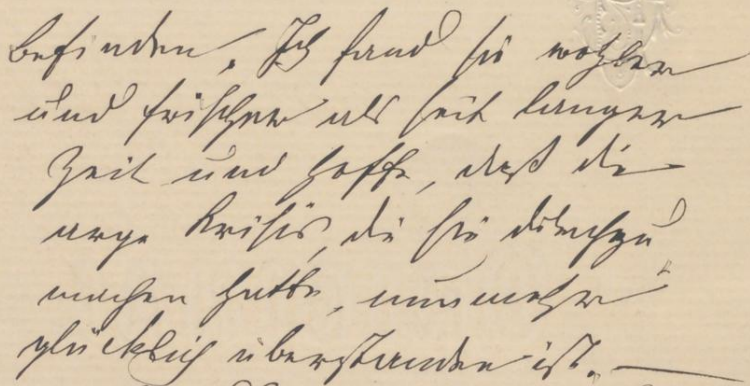 befinden. Ich fand sie wohler
und frischer als seit langer
Zeit und hoffe, daß die
arge Krisis, die sie durchzu
machen hatte, nunmehr
glücklich überstanden ist. —